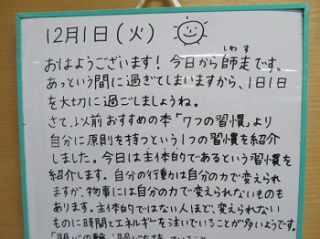 12月1日（火）
しわす
おはようございます！今日から師走です。
あっという間に過ぎてしまいますから、1日1日
を大切に過ごしましょうね。
さて、以前おすすめの本「7つの習慣」より
自分に原則を持つという1つの習慣を紹介
しました。今日は主体的であるという習慣を
紹介します。自分の行動は自分の力で変えられ
ますが、物事には自分の力で変えられないものも
あります。主体的ではない人ほど、変えられない
ものに時間とエネルギーを注いでいることが多いようです。